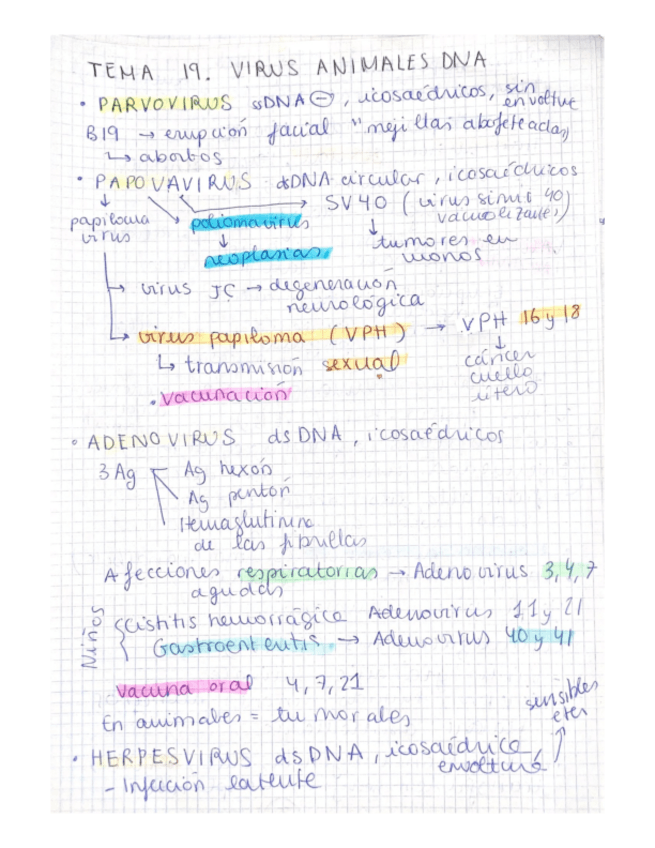 TEMA 19. VIRUS ANIMALES DNA
• PARVOVIRUS ssDNA ⊖, icosaédricos, sin envoltue
B19 → erupción facial "mejillas abofeteadas"
↳ abortos
• PAPOVAVIRUS dsDNA circular, icosaédricos
SV40 (virus simio 40 vacuolizante)
papiloma virus
poliomavirus
↓
neoplasias
↓
tumores en monos
→ virus JC → degeneración neurológica
→ virus papiloma (VPH) → VPH 16 y 18
↳ transmisión sexual
↓
cáncer cuello útero
• vacunación
• ADENOVIRUS dsDNA, icosaédricos
3 Ag
Ag hexón
Ag pentón
Hemaglutinina
de las fibrillas
Afecciones respiratorias → Adenovirus 3, 4, 7
agudas
Niños
Cistitis hemorrágica Adenovirus 11 y 21
Gastroenteritis → Adenovirus 40 y 41
Vacuna oral 4, 7, 21
En animales = tumorales
sensibles
eter
• HERPESVIRUS dsDNA, icosaédrica,
envoltura
- Infección latente